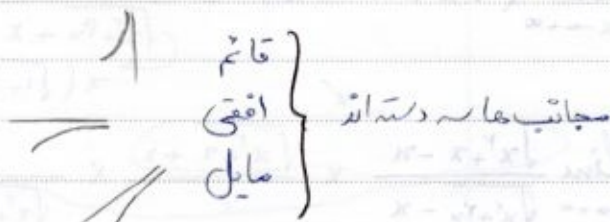 مجانب ها سه دسته اند
قائم
افقی
مایل